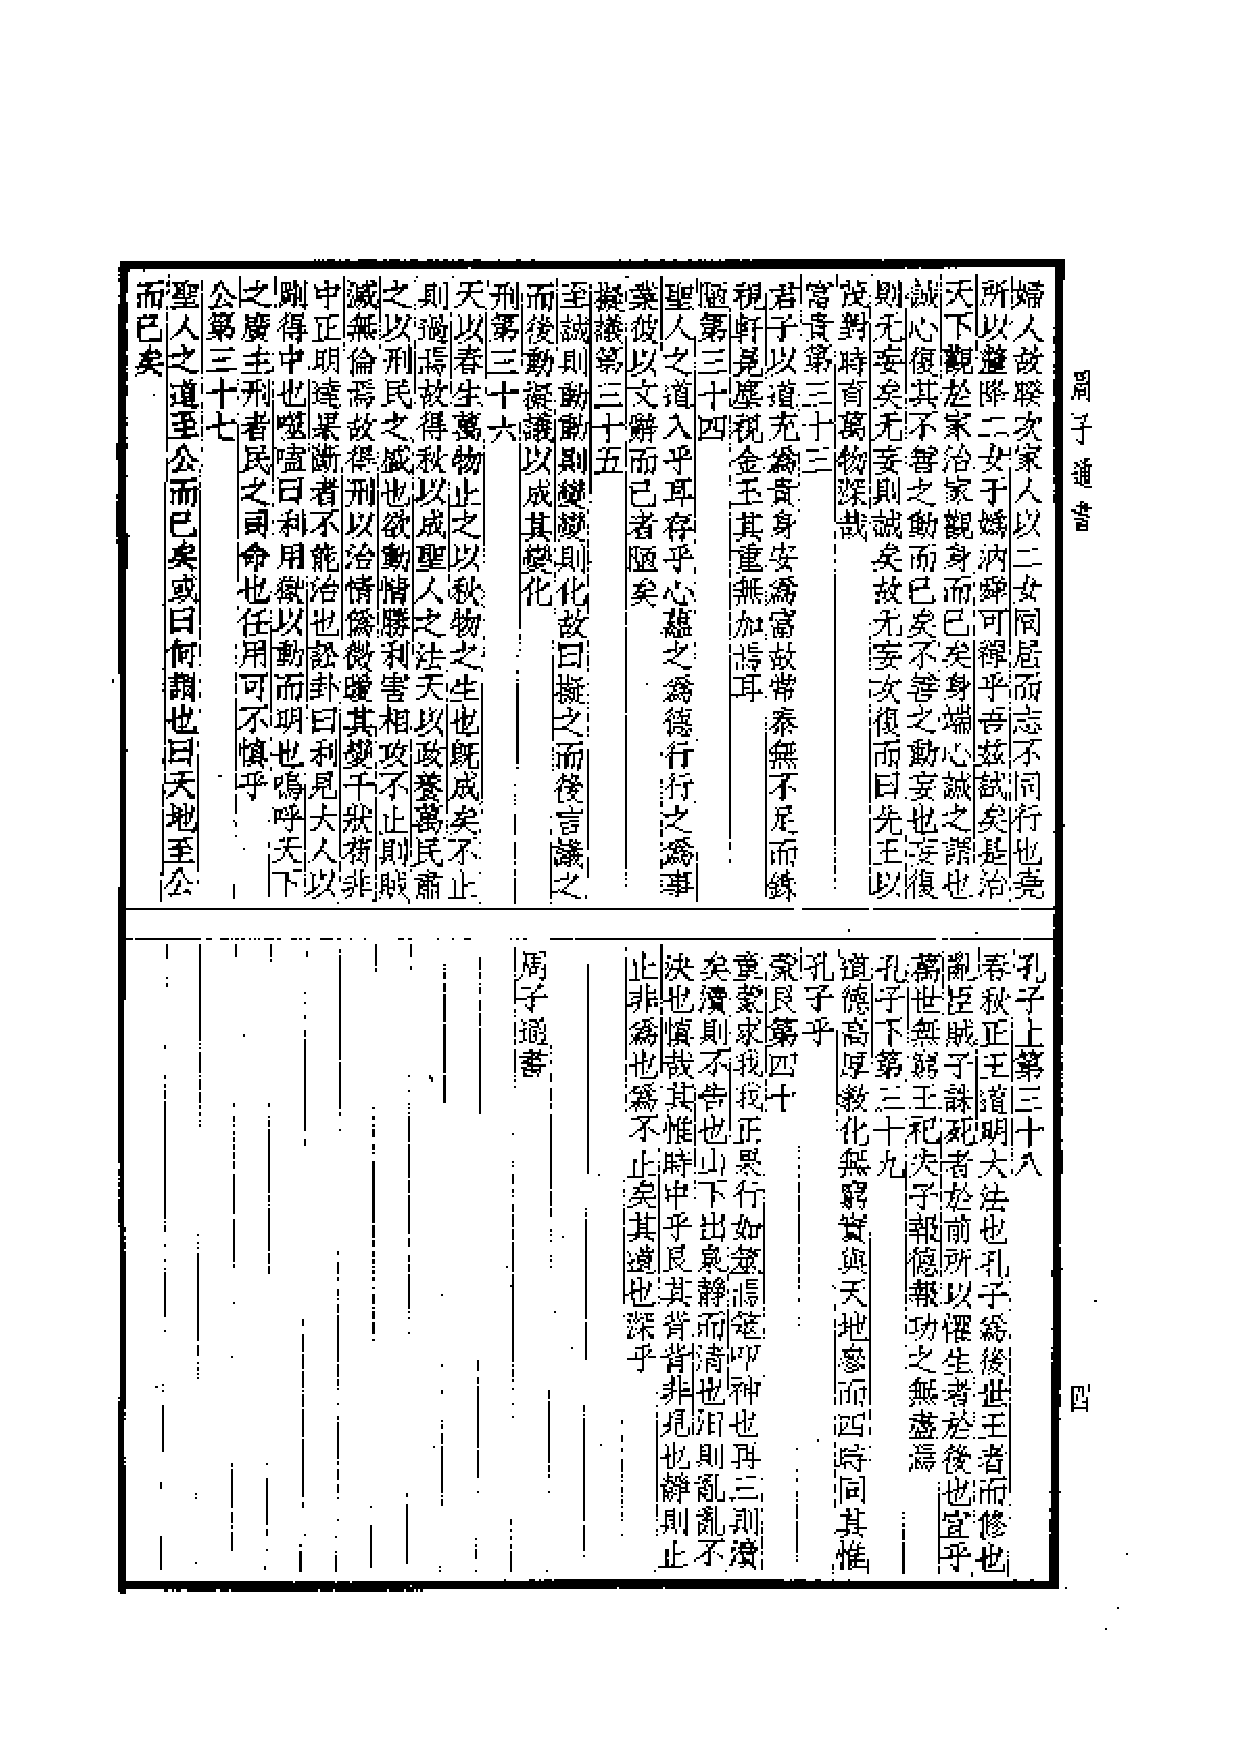 周子通書
四
婦人故睽次家人以二女同居而志不同行也堯
所以釐降二女于嬀汭舜可禪乎吾玆試矣是治
天下觀於家治家觀身而已矣身端心誠之謂也
誠心復其不善之動而已矣不善之動妄也妄復
則无妄矣无妄則誠矣故无妄次復而曰先王以
茂對時育萬物深哉
富貴第三十三
君子以道充爲貴身安爲富故常泰無不足而銖
視軒冕塵視金玉其重無加焉耳
陋第三十四
聖人之道入乎耳存乎心蘊之爲德行行之爲事
業彼以文辭而已者陋矣
擬議第三十五
至誠則動動則變變則化故曰擬之而後言議之
而後動擬議以成其變化
刑第三十六
天以春生萬物止之以秋物之生也旣成矣不止
則過焉故得秋以成聖人之法天以政養萬民肅
之以刑民之盛也欲動情勝利害相攻不止則賊
滅無倫焉故得刑以治情僞微曖其變千狀苟非
中正明達果斷者不能治也訟卦曰利見大人以
剛得中也噬嗑曰利用獄以動而明也嗚呼天下
之廣主刑者民之司命也任用可不慎乎
公第三十七
聖人之道至公而已矣或曰何謂也曰天地至公
而已矣
孔子上第三十八
春秋正王道明大法也孔子爲後世王者而修也
亂臣賊子誅死者於前所以懼生者於後也宜乎
萬世無窮王祀夫子報德報功之無盡焉
孔子下第三十九
道德高厚敎化無窮實與天地參而四時同其惟
孔子乎
蒙艮第四十
童蒙求我我正果行如筮焉筮叩神也再三則瀆
矣瀆則不告也山下出泉靜而清也汨則亂亂不
決也愼哉其惟時中乎艮其背背非見也靜則止
止非爲也爲不止矣其道也深乎
周子通書